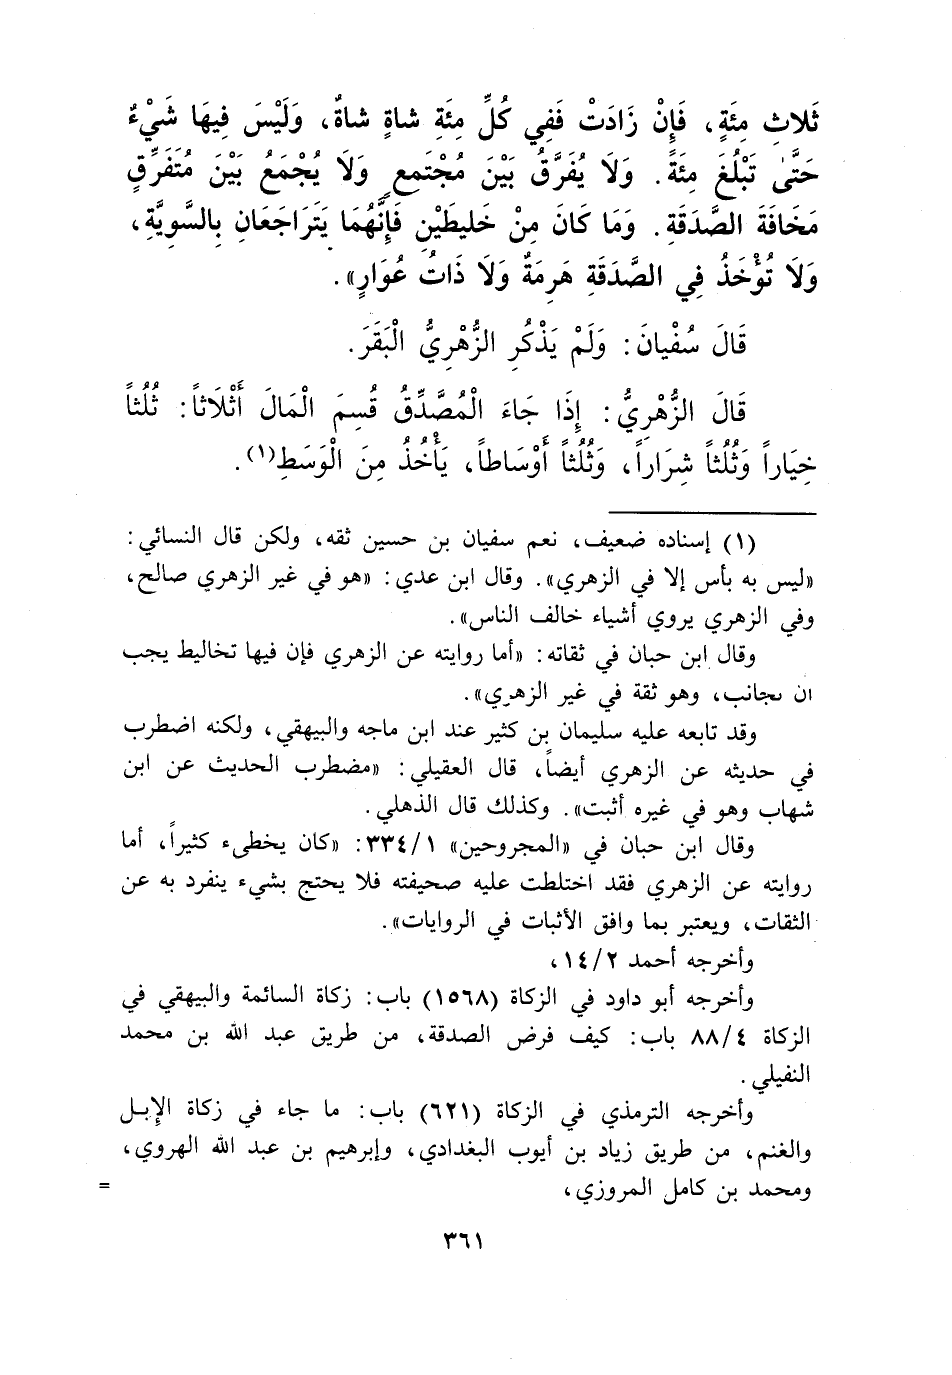 ثَلاثِ مِئَةٍ، فَإِنْ زَادَتْ فَفِي كُلِّ مِئَةِ شاةٍ شاةٌ، وَلَيْسَ فِيهَا شَيْءٌ
حَتَّىٰ تَبْلُغَ مِئَةً. وَلَا يُفَرَّقُ بَيْنَ مُجْتَمِعٍ وَلَا يُجْمَعُ بَيْنَ مُتَفَرِّقٍ
مَخَافَةَ الصَّدَقَةِ. وَمَا كَانَ مِنْ خَلِيطَيْنِ فَإِنَّهُمَا يَتَرَاجَعَانِ بِالسَّوِيَّةِ،
وَلَا تُؤْخَذُ فِي الصَّدَقَةِ هَرِمَةٌ وَلَا ذَاتُ عُوَارٍ».
قَالَ سُفْيانَ: وَلَمْ يَذْكُرِ الزُّهْرِيُّ الْبَقَرَ.
قَالَ الزُّهْرِيُّ: إِذَا جَاءَ الْمُصَّدِّقُ قُسِمَ الْمَالَ أَثْلَاثاً: ثُلُثاً
خِيَاراً وَثُلُثاً شِرَاراً، وَثُلُثاً أَوْسَاطاً، يَأْخُذُ مِنَ الْوَسَطِ(١).
(١) إسناده ضعيف، نعم سفيان بن حسين ثقه، ولكن قال النسائي:
«ليس به بأس إلا في الزهري». وقال ابن عدي: «هو في غير الزهري صالح،
وفي الزهري يروي أشياء خالف الناس».
وقال ابن حبان في ثقاته: «أما روايته عن الزهري فإن فيها تخاليط يجب
ان يجانب، وهو ثقة في غير الزهري».
وقد تابعه عليه سليمان بن كثير عند ابن ماجه والبيهقي، ولكنه اضطرب
في حديثه عن الزهري أيضاً، قال العقيلي: «مضطرب الحديث عن ابن
شهاب وهو في غيره أثبت». وكذلك قال الذهلي.
وقال ابن حبان في «المجروحين» ١/٣٣٤: «كان يخطىء كثيراً، أما
روايته عن الزهري فقد اختلطت عليه صحيفته فلا يحتج بشيء ينفرد به عن
الثقات، ويعتبر بما وافق الأثبات في الروايات».
وأخرجه أحمد ٢/١٤،
وأخرجه أبو داود في الزكاة (١٥٦٨) باب: زكاة السائمة والبيهقي في
الزكاة ٤/٨٨ باب: كيف فرض الصدقة، من طريق عبد الله بن محمد
النفيلي.
وأخرجه الترمذي في الزكاة (٦٢١) باب: ما جاء في زكاة الإبل
والغنم، من طريق زياد بن أيوب البغدادي، وإبرهيم بن عبد الله الهروي،
ومحمد بن كامل المروزي، =
٣٦١